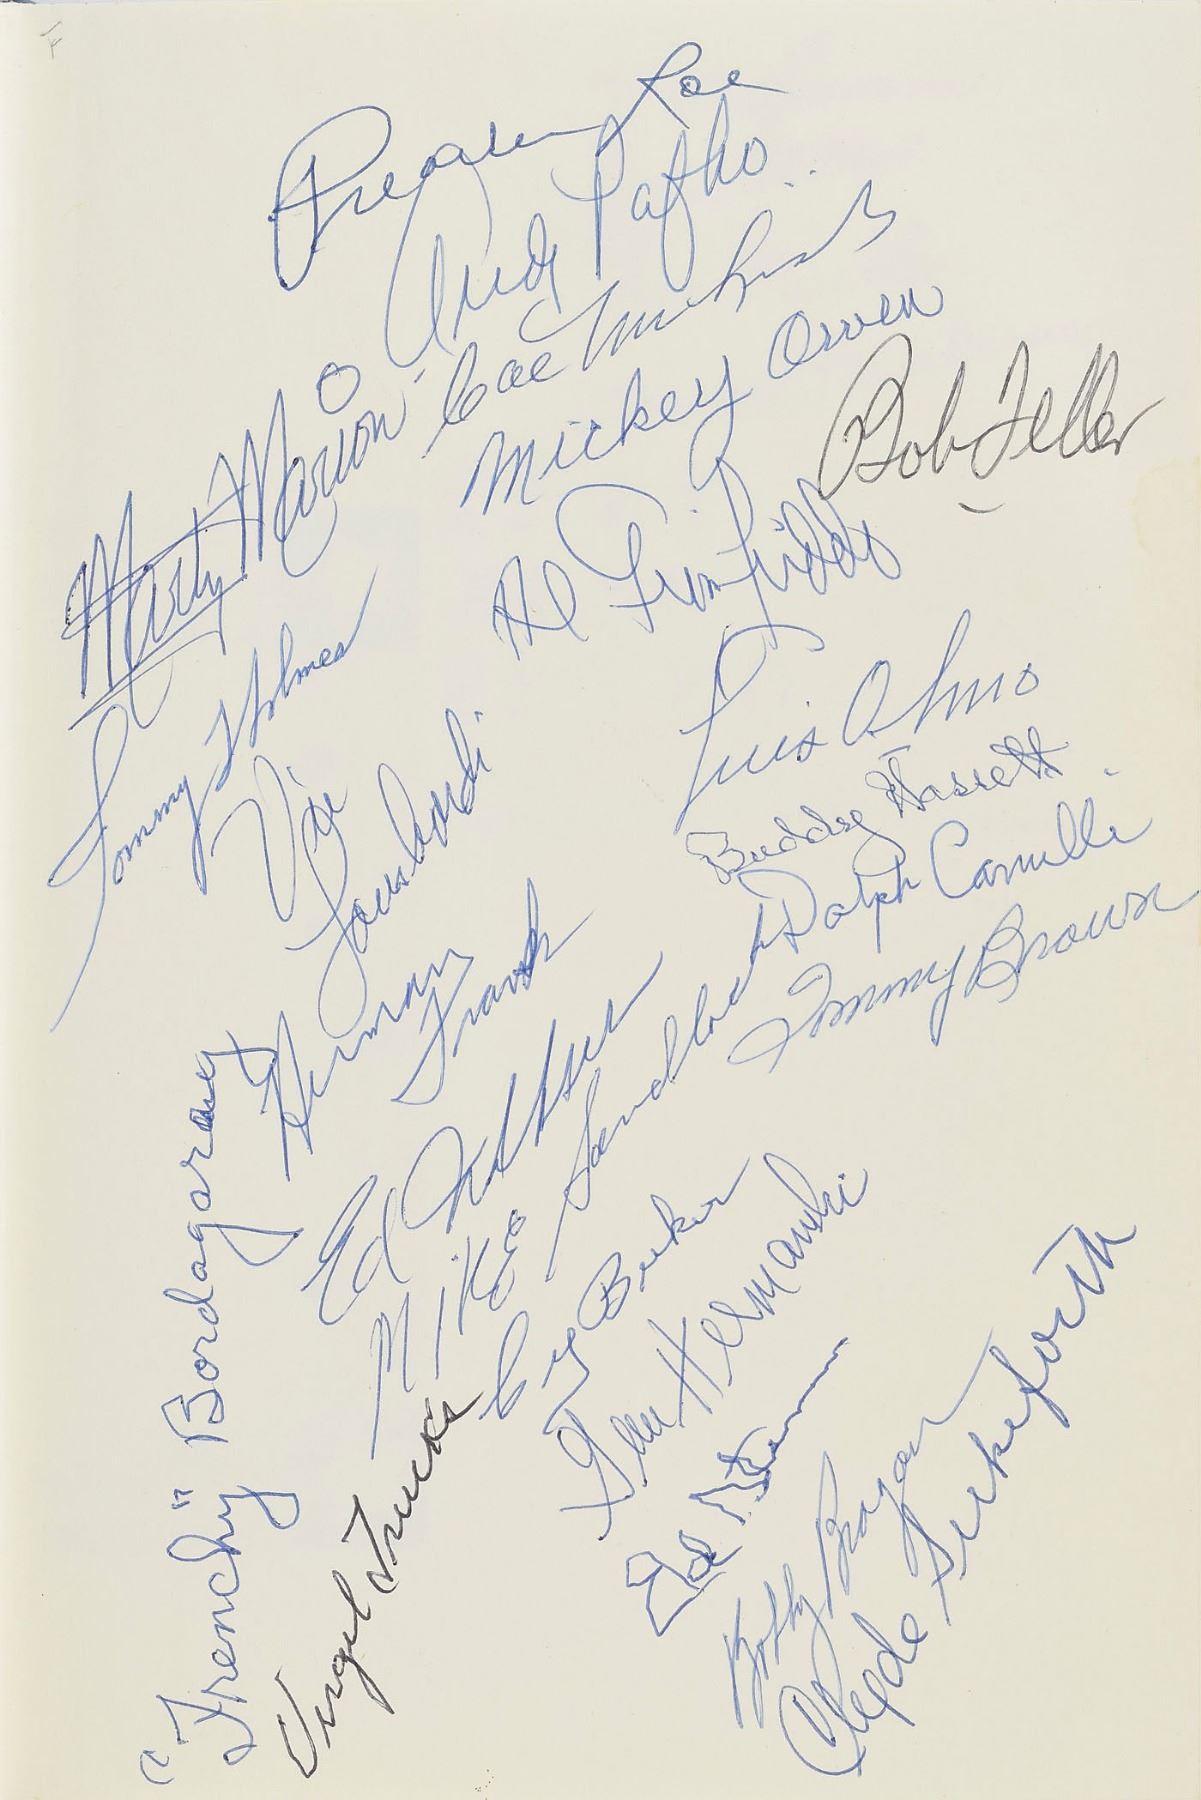 Preacher Roe
Andy Pafko
Cal McLish
Mickey Owen
Bob Feller
Marty Marion
Al Gionfriddo
Tommy Holmes
Luis Olmo
Vic Lombardi
Buddy Hassett
Dolph Camilli
Tommy Brown
Herman Franks
Mike Sandlock
"Frenchy" Bordagaray
Cy Buker
Gene Hermanski
Virgil Trucks
Ed Stevens
Bobby Bragan
Clyde Sukeforth